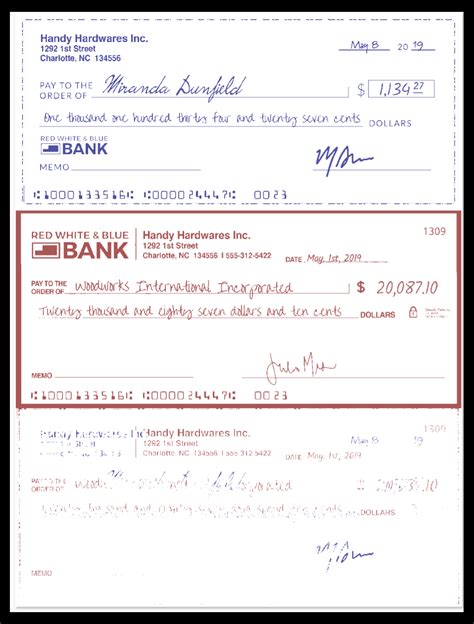 Handy Hardwares Inc.
1292 1st Street
Charlotte, NC 134556
May 8 2019
PAY TO THE
ORDER OF Miranda Dunfield $ 1,134 27
One thousand one hundred thirty four and twenty seven cents DOLLARS
RED WHITE & BLUE
BANK
MEMO
⑆1000133516⑆ ⑆00002444 7⑆ 0023
RED WHITE & BLUE
BANK
Handy Hardwares Inc.
1292 1st Street
Charlotte, NC 134556 | 555-312-5422
1309
DATE May, 1st, 2019
PAY TO THE
ORDER OF Woodworks International Incorporated $ 20,087.10
Twenty thousand and eighty seven dollars and ten cents DOLLARS
MEMO
⑆1000133516⑆ ⑆00002444 7⑆ 0023
Handy Hardwares Inc.
1292 1st Street
Charlotte, NC 134556 | 555-312-5422
1309
May 8 19
DATE May, 1st, 2019
PAY TO THE
ORDER OF
DOLLARS
MEMO